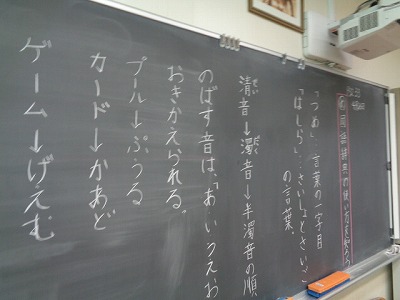 国語辞典の使い方を知ろう
「つめ」…言葉の一字目
「はしら」…さいしょとさいご
の言葉。
清音→濁音→半濁音の順。
のばす音は、「あ・いうえお
おきかえられる。
プール→ぷうる
カード→かあど
ゲーム→げえむ